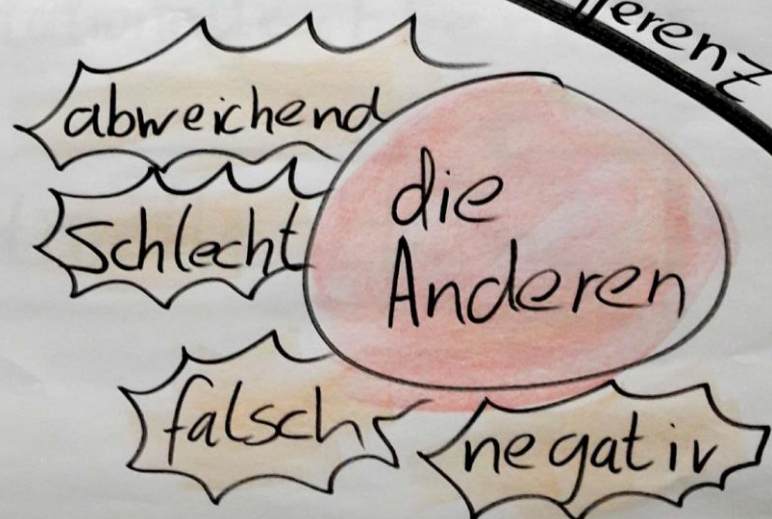 abweichend
Schlecht
die
Anderen
falsch
negativ